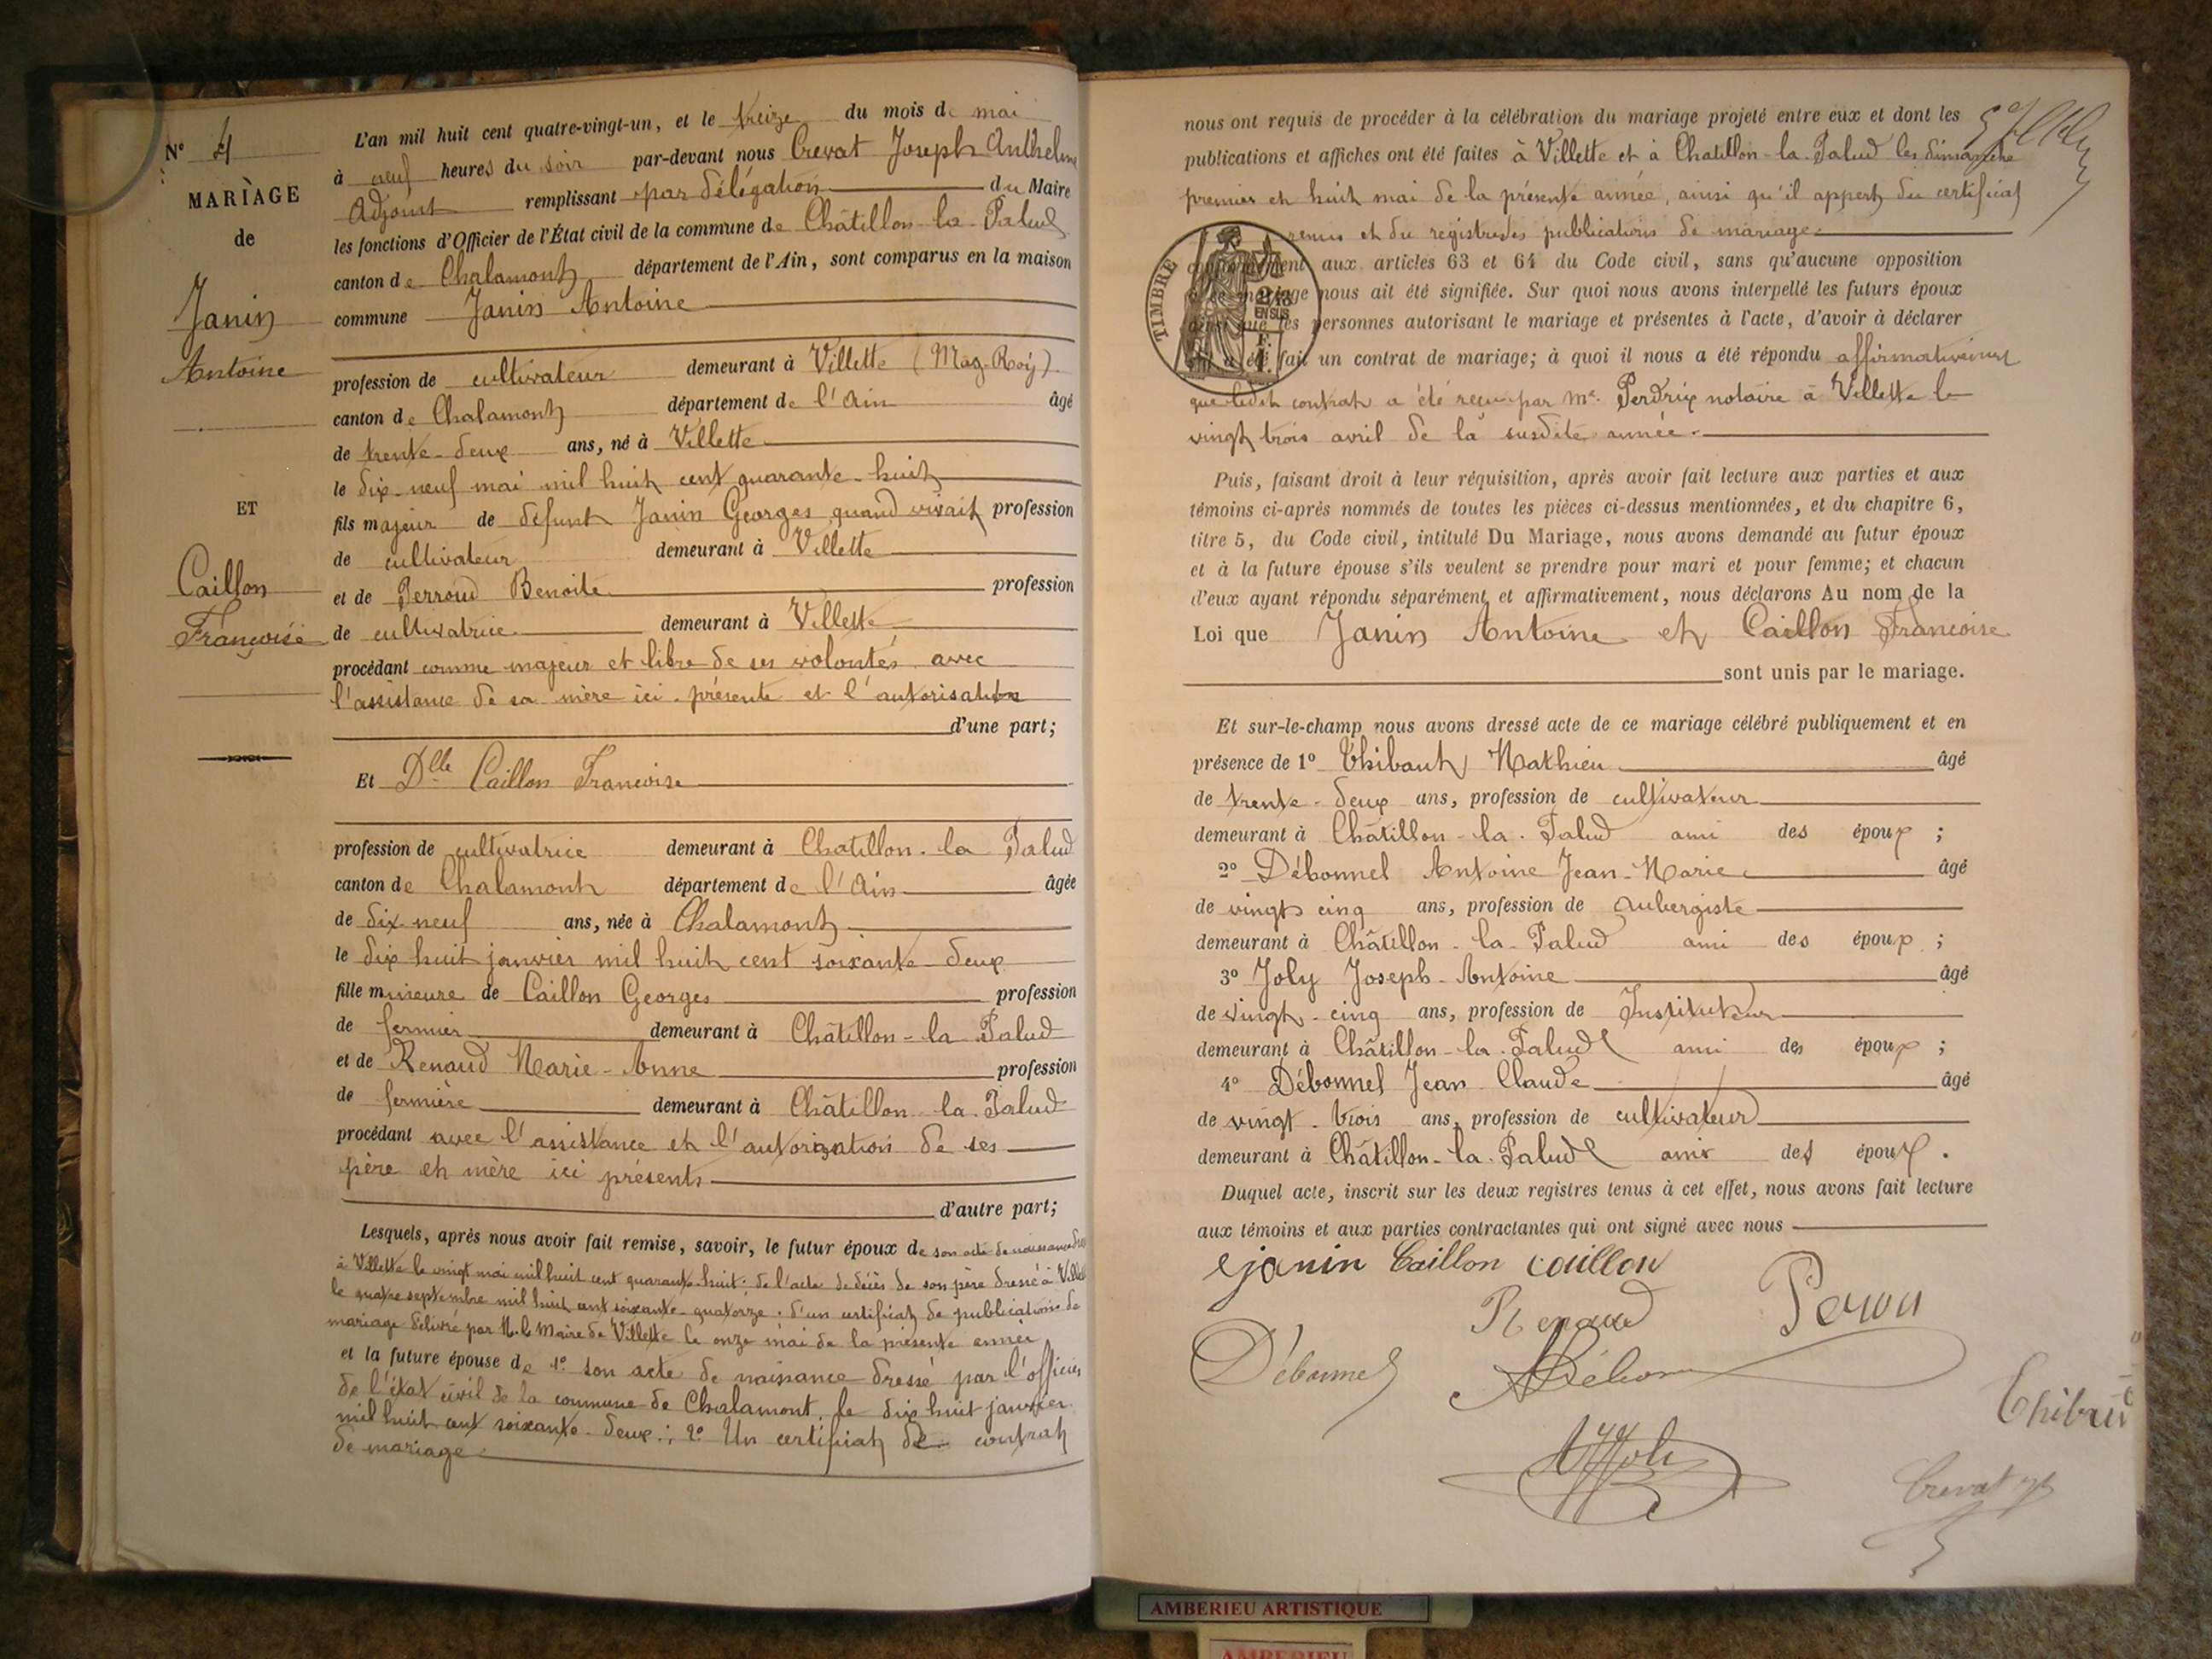 N° 4
MARIAGE
de
Janin
Antoine
ET
Caillon
Françoise
L'an mil huit cent quatre-vingt-un, et le treize du mois de mai
à neuf heures du soir par-devant nous Crevat Joseph Anthelme
Adjoint remplissant par délégation du Maire
les fonctions d'Officier de l'État civil de la commune de Châtillon-la-Palud
canton de Chalamont département de l'Ain, sont comparus en la maison
commune Janin Antoine
profession de cultivateur demeurant à Villette (Maz-Roy)
canton de Chalamont département de l'Ain âgé
de trente-deux ans, né à Villette
le dix-neuf mai mil huit cent quarante-huit
fils majeur de défunt Janin Georges quand vivait profession
de cultivateur demeurant à Villette
et de Perroud Benoite profession
de cultivatrice demeurant à Villette
procédant comme majeur et libre de ses volontés avec
l'assistance de sa mère ici présente et l'autorisation
d'une part;
Et Dlle Caillon Francoise
profession de cultivatrice demeurant à Chatillon-la Palud
canton de Chalamont département de l'Ain âgée
de dix-neuf ans, née à Chalamont
le dix huit janvier mil huit cent soixante deux
fille mineure de Caillon Georges profession
de fermier demeurant à Châtillon-la Palud
et de Renaud Marie-Anne profession
de fermière demeurant à Châtillon la Palud
procédant avec l'assistance et l'autorization de ses
père et mère ici présents
d'autre part;
Lesquels, après nous avoir fait remise, savoir, le futur époux de son acte de naissance
à Villette le vingt mai mil huit cent quarante-huit; de l'acte de décès de son père dressé à Villette
le quatre septembre mil huit cent soixante-quatorze; d'un certificat de publications de
mariage délivré par M. le Maire de Villette le onze mai de la présente année
et la future épouse de 1° son acte de naissance dressé par l'officier
de l'état civil de la commune de Chalamont, le dix huit janvier
mil huit cent soixante-deux; 2° Un certificat de contrat
de mariage
nous ont requis de procéder à la célébration du mariage projeté entre eux et dont les
publications et affiches ont été faites à Villette et à Chatillon-la-Palud les dimanche
premier et huit mai de la présente année, ainsi qu'il appert du certificat
et du registre des publications de mariage
aux articles 63 et 64 du Code civil, sans qu'aucune opposition
mariage nous ait été signifiée. Sur quoi nous avons interpellé les futurs époux
que les personnes autorisant le mariage et présentes à l'acte, d'avoir à déclarer
a été fait un contrat de mariage; à quoi il nous a été répondu affirmativement
que ledit contrat a été reçu par Me. Perdrix notaire à Villette le
vingt trois avril de la susdite année.
TIMBRE
2/10
EN SUS
Puis, faisant droit à leur réquisition, après avoir fait lecture aux parties et aux
témoins ci-après nommés de toutes les pièces ci-dessus mentionnées, et du chapitre 6,
titre 5, du Code civil, intitulé Du Mariage, nous avons demandé au futur époux
et à la future épouse s'ils veulent se prendre pour mari et pour femme; et chacun
d'eux ayant répondu séparément et affirmativement, nous déclarons Au nom de la
Loi que Janin Antoine et Caillon Francoise
sont unis par le mariage.
Et sur-le-champ nous avons dressé acte de ce mariage célébré publiquement et en
présence de 1° Thibaut Mathieu âgé
de trente-deux ans, profession de cultivateur
demeurant à Châtillon-la-Palud ami des époux;
2° Débonnel Antoine Jean-Marie âgé
de vingt cinq ans, profession de aubergiste
demeurant à Châtillon-la-Palud ami des époux;
3° Joly Joseph-Antoine âgé
de vingt-cinq ans, profession de Instituteur
demeurant à Châtillon-la-Palud ami des époux;
4° Débonnel Jean Claude âgé
de vingt-trois ans, profession de cultivateur
demeurant à Châtillon-la-Palud ami des époux.
Duquel acte, inscrit sur les deux registres tenus à cet effet, nous avons fait lecture
aux témoins et aux parties contractantes qui ont signé avec nous
janin Caillon caillon
Renaud
Débonnel
Crevat
AMBERIEU ARTISTIQUE
AMBERIEU